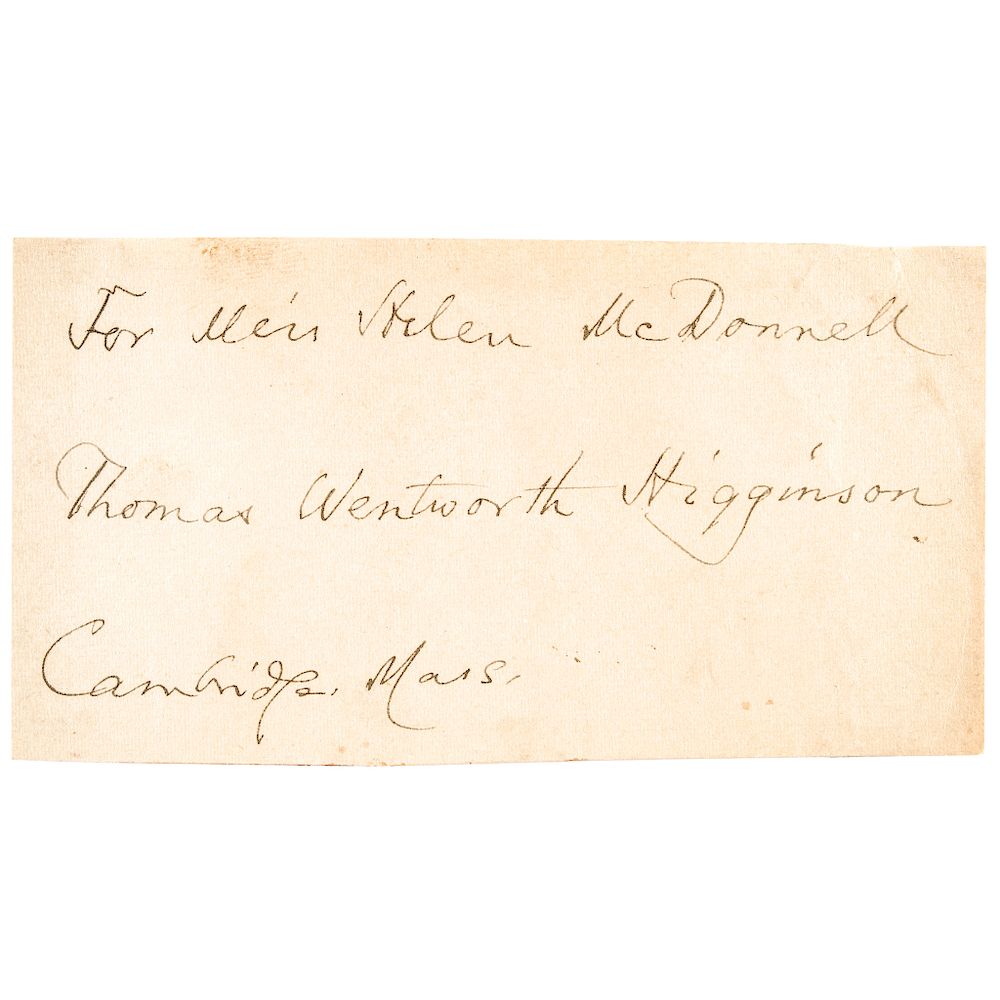 For Miss Helen McDonnell
Thomas Wentworth Higginson
Cambridge. Mass.